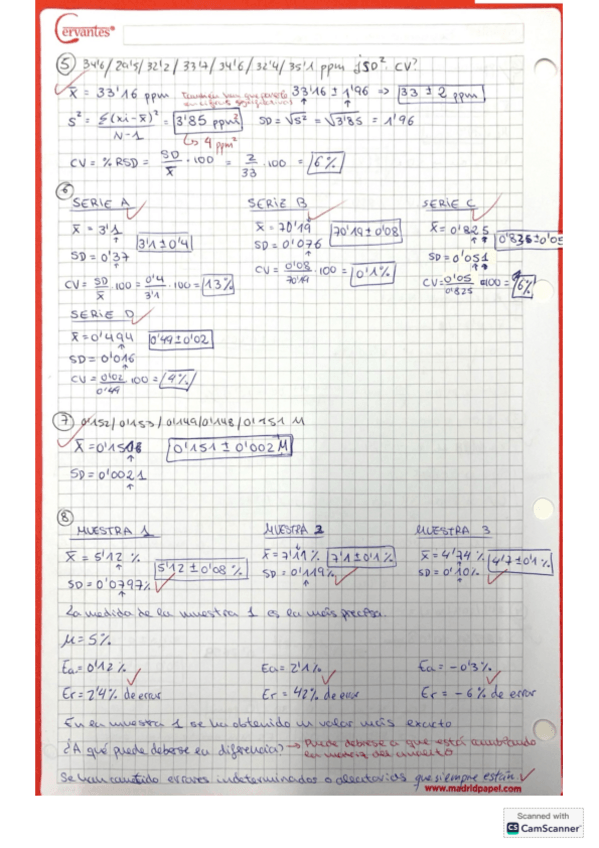 Cervantes®
⑤ 34'6/ 29'5/ 32'2 / 33'7/ 34'6/ 32'4/ 35'1 ppm ¿SD² CV?
x̄ = 33'16 ppm 33'16 ± 1'96 => 33 ± 2 ppm
s² = Σ(xi-x̄)² / N-1 = 3'85 ppm² SD = √s² = √3'85 = 1'96
↳ 4 ppm²
CV = % RSD = SD/x̄ · 100 = 2/33 · 100 = 6%
⑥
SERIE A SERIE B SERIE C
x̄ = 3'1 3'1 ± 0'4 x̄ = 70'19 70'19 ± 0'08 x̄ = 0'825
SD = 0'37 SD = 0'076 SD = 0'051
CV = SD/x̄ · 100 = 0'4/3'1 · 100 = 13% CV = 0'08/70'19 · 100 = 0'1% CV = 0'05/0'825 · 100 = 6%
SERIE D
x̄ = 0'494 0'49 ± 0'02
SD = 0'016
CV = 0'02/0'49 · 100 = 4%
⑦ 0'152/ 0'153/ 0'149/ 0'148/ 0'151 M
x̄ = 0'1506 0'151 ± 0'002 M
SD = 0'0021
⑧
MUESTRA 1 MUESTRA 2 MUESTRA 3
x̄ = 5'12 % 5'12 ± 0'08 % x̄ = 7'11 % 7'1 ± 0'1 % x̄ = 4'74 % 4'7 ± 0'1 %
SD = 0'0797% SD = 0'119% SD = 0'10%
La medida de la muestra 1 es la más precisa.
μ = 5%
Ea = 0'12% Ea = 2'1% Ea = -0'3%
Er = 2'4% de error Er = 42% de error Er = -6% de error
En la muestra 1 se ha obtenido un valor más exacto
¿A qué puede deberse la diferencia? → Puede deberse a que está cambiando
la matriz del analito
Se han cometido errores indeterminados o aleatorios que siempre están
www.madridpapel.com
Scanned with
CS CamScanner